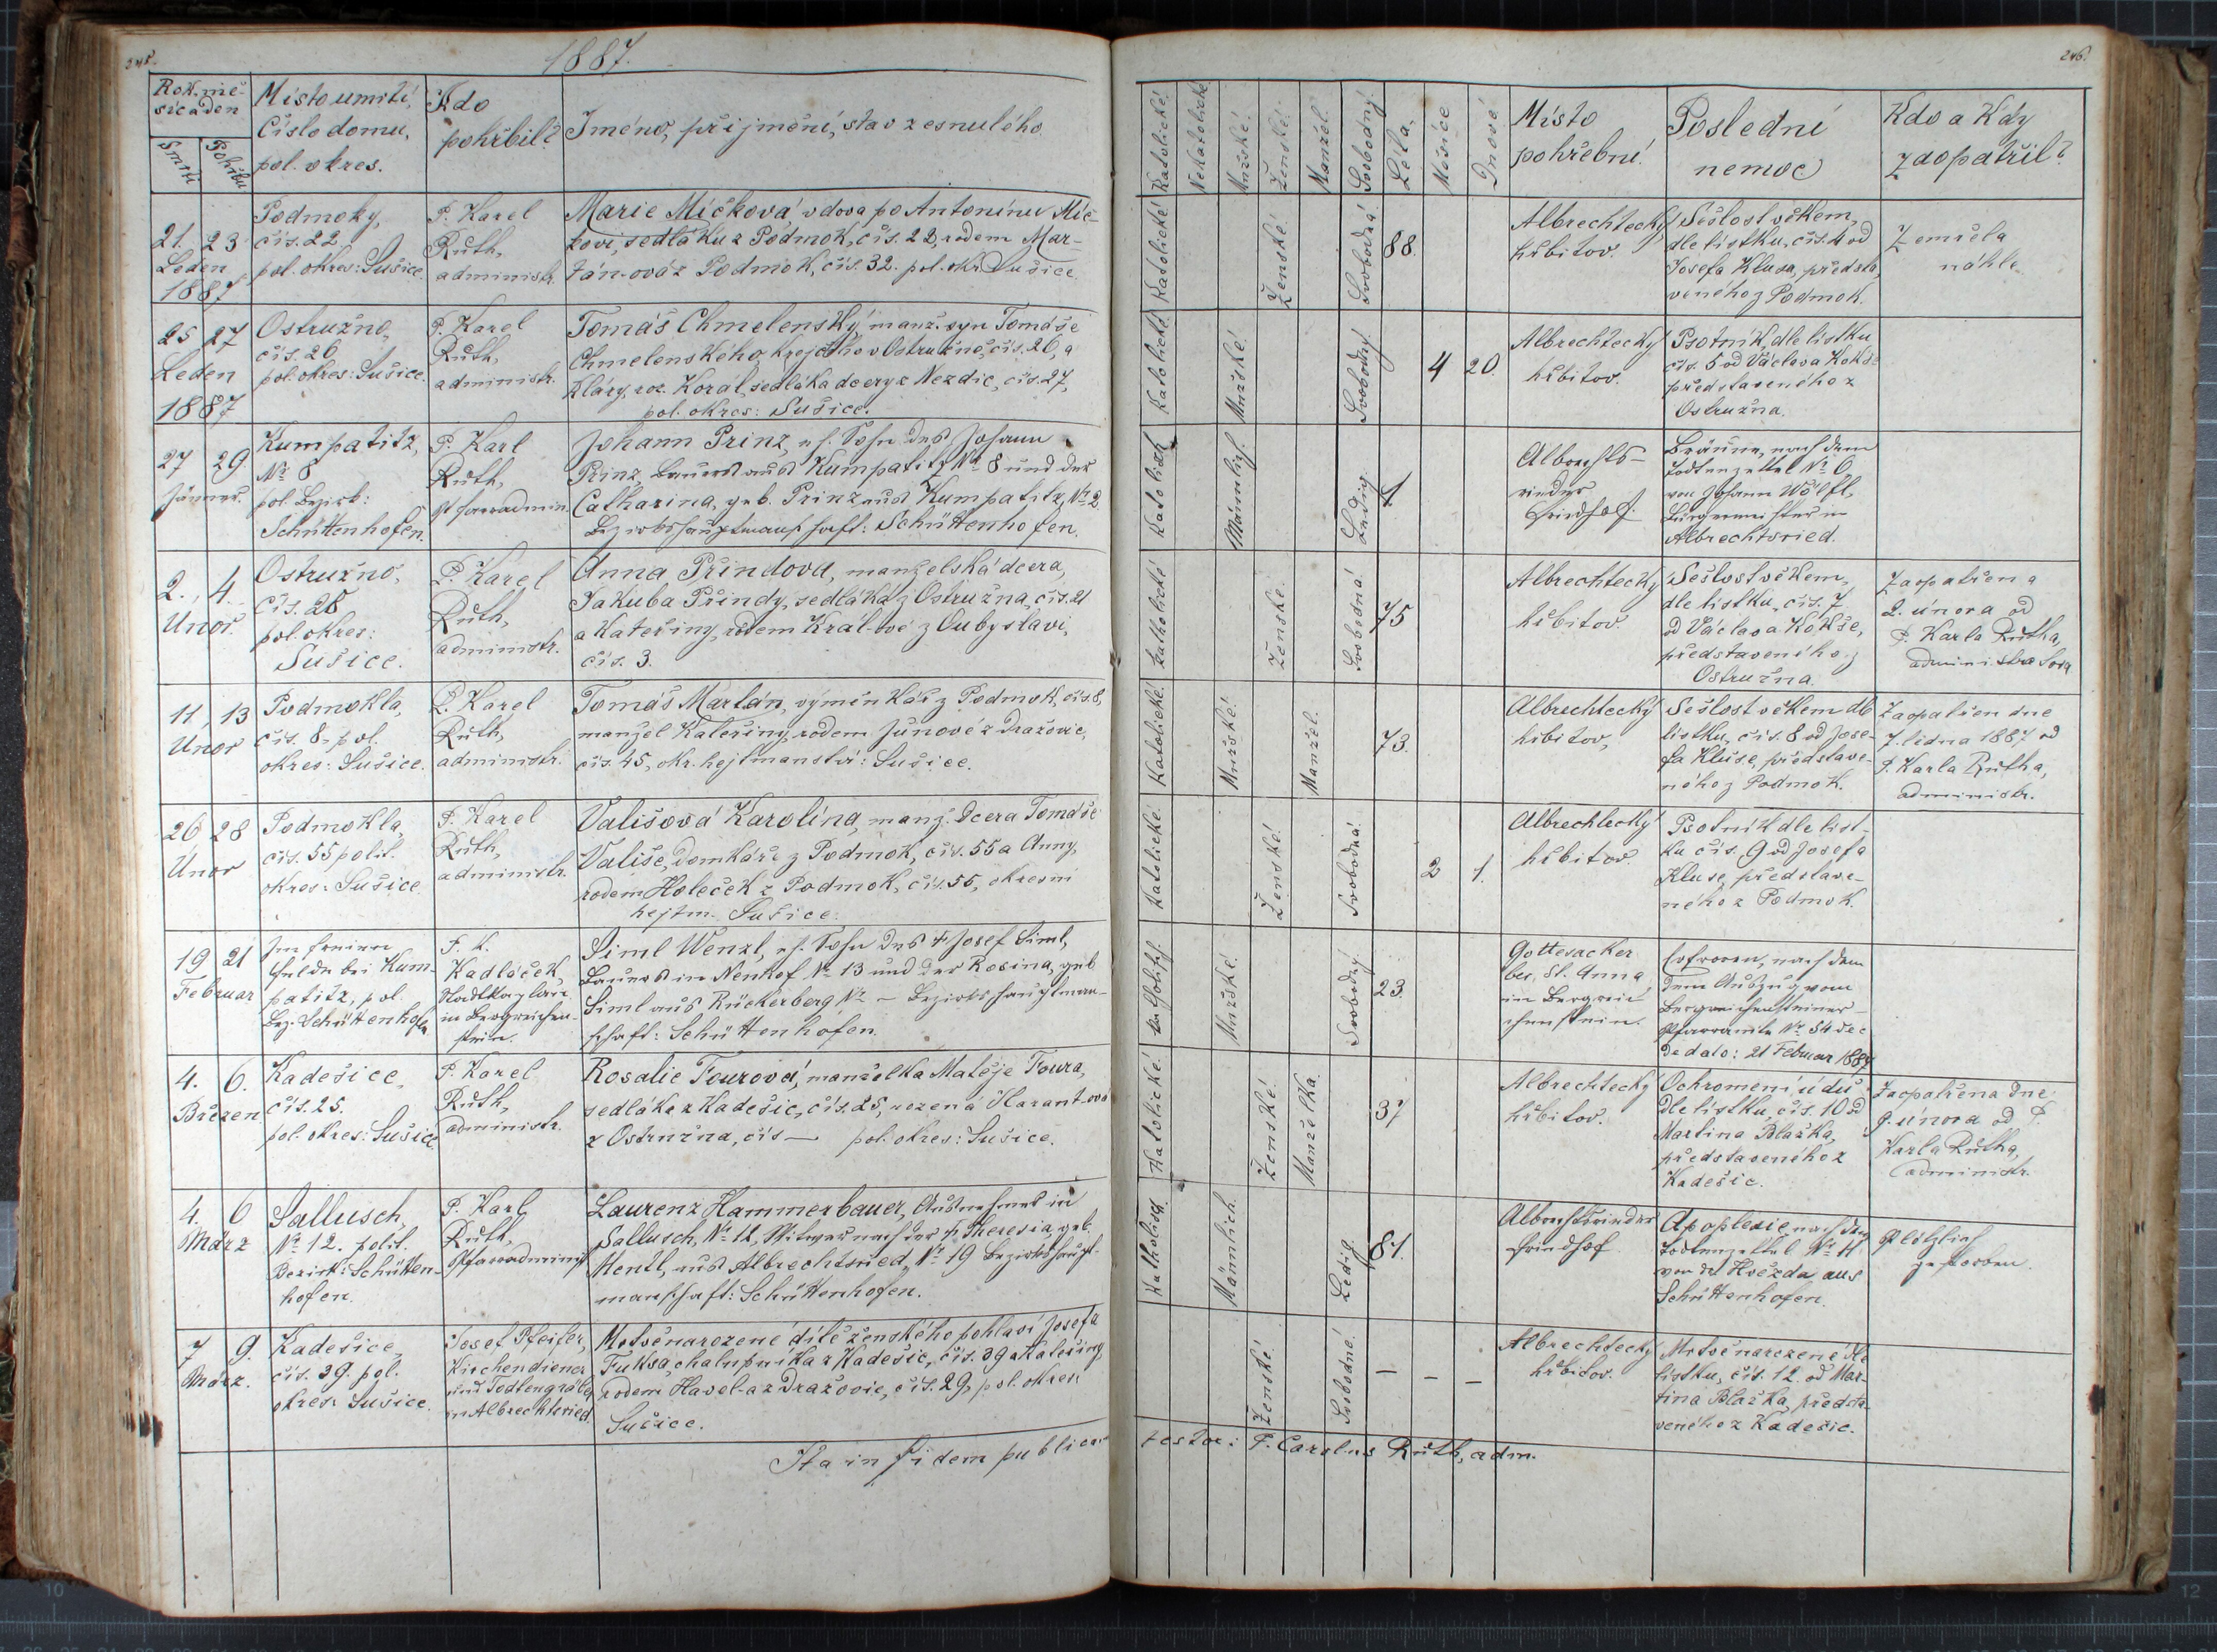 245.
1887.
Rok, mě-
síc a den
Smrti
Pohřbu
Místo umrtí,
Číslo domu,
pol. okres.
Kdo
pohřbil?
Jméno, přijmění, stav zesnulého.
21. 23
Leden
1887
Podmoky,
čís. 22,
pol. okres: Sušice.
P. Karel
Ruth,
administr.
Marie Míčková, vdova po Antonínu Míč-
kovi, sedláku z Podmok, čís. 22, rodem Mar-
tán-ová z Podmok, čís. 32. pol. okr. Sušice.
25 27
Leden
1887
Ostružno,
čís. 26,
pol. okres: Sušice.
P. Karel
Ruth,
administr.
Tomáš Chmelenský, manž. syn Tomáše
Chmelenského, krejčího v Ostružně, čís. 26, a
Kláry, roz. Koral, sedláka dcery z Nezdic, čís. 27,
pol. okres: Sušice.
27 29
Jänner.
Kumpatitz,
No 8
pol. Bezirk:
Schüttenhofen.
P. Karl
Ruth,
Pfarradmin.
Johann Prinz, eh. Sohn des Johann
Prinz, Bauers aus Kumpatitz No 8 und der
Catharina, geb. Prinz aus Kumpatitz, No 2
Bezirkshauptmannschaft: Schüttenhofen.
2. 4.
Unor.
Ostružno,
čís. 28
pol. okres:
Sušice.
P. Karel
Ruth,
administr.
Anna Přindova, manželská dcera,
Jakuba Přindy, sedláka z Ostružna, čís. 21
a Kateřiny, rodem Král-ové z Čubyslavi,
čís. 3.
11, 13
Unor
Podmokla,
čís. 8, pol.
okres: Sušice.
P. Karel
Ruth,
administr.
Tomáš Martan, výmínkář z Podmok, čís. 8,
manžel Kateřiny, rodem Junové z Dražovic,
čís. 45, okr. hejtmanství: Sušice.
26 28
Unor
Podmokla,
čís. 55 polit.
okres: Sušice.
P. Karel
Ruth,
administr.
Vališová Karolína, manž. dcera Tomáše
Vališe, domkáře z Podmok, čís. 55 a Anny,
rodem Holeček z Podmok, čís. 55, okresní
hejtm. Sušice.
19 21
Februar
Im freien
Felde bei Kum-
patitz, pol.
Bez. Schüttenhofen
F. K.
Kadláček,
Stadtkaplan
in Bergreichen-
stein.
Siml Wenzl, eh. Sohn des + Josef Siml,
Bauers in Nenkof No 13 und der Rosina, geb.
Siml aus Rückerberg No – Bezirkshauptman-
schaft: Schüttenhofen.
4. 6.
Březen
Kadešice,
čís. 25.
pol. okres: Sušice.
P. Karel
Ruth,
administr.
Rosalie Fourová, manželka Matěje Foura,
sedláka z Kadešic, čís. 25, rozená Harant-ová
z Ostružna, čís — pol. okres: Sušice.
4. 6
März
Sallusch,
No 12. polit.
Bezirk: Schütten-
hofen.
P. Karl
Ruth,
Pfarradminist.
Laurenz Hammerbauer, Ausnehmer in
Sallusch, No 12, Witwer nach der + Theresia, geb.
Mentl, aus Albrechtsried, No 19 Bezirkshaupt-
mannschaft: Schüttenhofen.
7 9.
März.
Kadešice,
čís. 39. pol.
okres: Sušice.
Josef Pfeifer,
Kirchendiener
und Todtengräber
in Albrechtsried.
Mrtvě narozené dítě ženského pohlaví Josefa
Fuksa, chalupníka z Kadešic, čís. 39 a Kateřiny,
rodem Havel-a z Dražovic, čís. 29, pol. okres
Sušice.
Ita in fidem publicam
246.
Katolické.
Nekatolické
Mužské.
Ženské.
Manžel.
Svobodný.
Léta,
Měsíce
Dnové
Místo
pohřební.
Poslední
nemoc
Kdo a Kdy
zaopatřil?
Katolické
Ženské.
Svobodná.
88.
Albrechtecky
hřbitov.
Sešlost věkem,
dle lístku, čís. 4 od
Josefa Klusa, předsta-
veného z Podmok.
Zemřela
náhle.
Katolické.
Mužské.
Svobodný.
4 20.
Albrechtecky
hřbitov.
Psotník, dle lístku
čís. 5 od Václava Kokše
představeného z
Ostružna.
Katolisch
Männlich.
Ledig
1
Albrechts-
rieder
Friedhof.
Bräune, nach dem
Todtenzettel No 6
von Johann Wölfl,
Bürgermeister in
Albrechtsried.
Katholické
Ženské.
Svobodná.
75
Albrechtecky
hřbitov.
Sešlost věkem,
dle lístku, čís. 7
od Václava Kokše,
představeného z
Ostružna.
Zaopatřena
2. února od
P. Karla Rutha,
administratora
Katolické.
Mužské.
Manžel.
73.
Albrechtecký
hřbitov,
Sešlost věkem dle
lístku, čís. 8 od Jose-
fa Kluse, představe-
ného z Podmok.
Zaopatřen dne
7. ledna 1887 od
P. Karla Rutha,
administr.
Katolické.
Ženské.
Svobodná.
2 1.
Albrechtecký
hřbitov.
Psotník dle líst-
ku čís. 9 od Josefa
Kluse, představe-
ného z Podmok.
Katholisch.
Mužské.
Svobodný.
23.
Gottesacker
bei St. Anna
in Bergrei-
chenstein.
Erfroren, nach dem
dem Auszug vom
Bergreichensteiner-
Pfarramte No 54 dec
de dato: 21 Februar 1887
Katolické.
Ženské.
Manželka.
37
Albrechtecký
hřbitov.
Ochromení údů
dle lístku, čís. 10 od
Martina Blažka,
představeného z
Kadešic.
Zaopatřena dne
9. února od P.
Karla Rutha,
administr.
Katholisch.
Männlich.
Ledig.
81.
Albrechtsrieder
Friedhof
Apoplexie, nach dem
Todtenzettel No 11
von Hvězda aus
Schüttenhofen.
Plötzlich
gestorben.
Ženské.
Svobodné.
– – –
Albrechtecký
hřbitov.
Mrtvě narozené dle
lístku, čís. 12. od Mar-
tina Blažka, předsta-
veného z Kadešic.
testor: P. Carolus Ruth, adm.